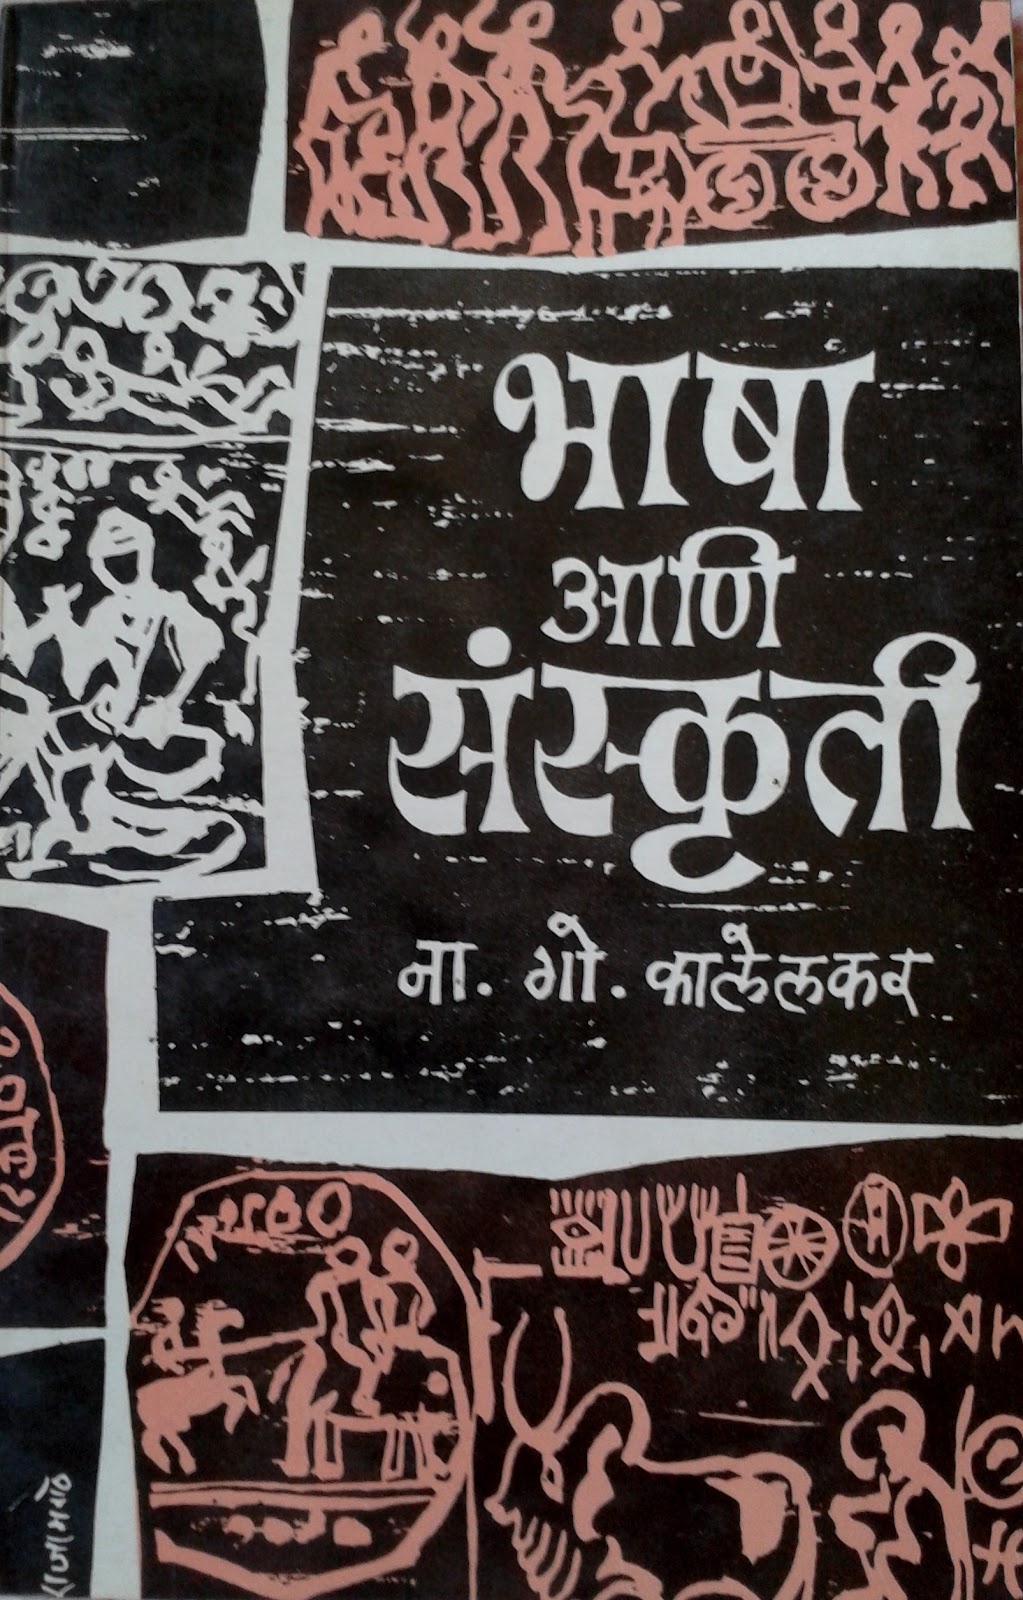 भाषा
आणि
संस्कृती
ना. गो. कालेलकर